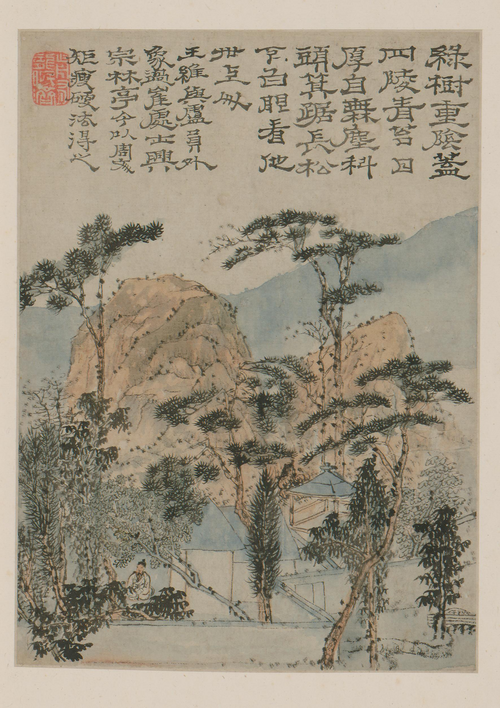 綠樹重陰蓋
四隣青苔日
厚自無塵科
頭箕踞長松
下白眼看他
世上人
王維與盧員外
象過崔處士興
宗林亭今以周
瘦硬法得之